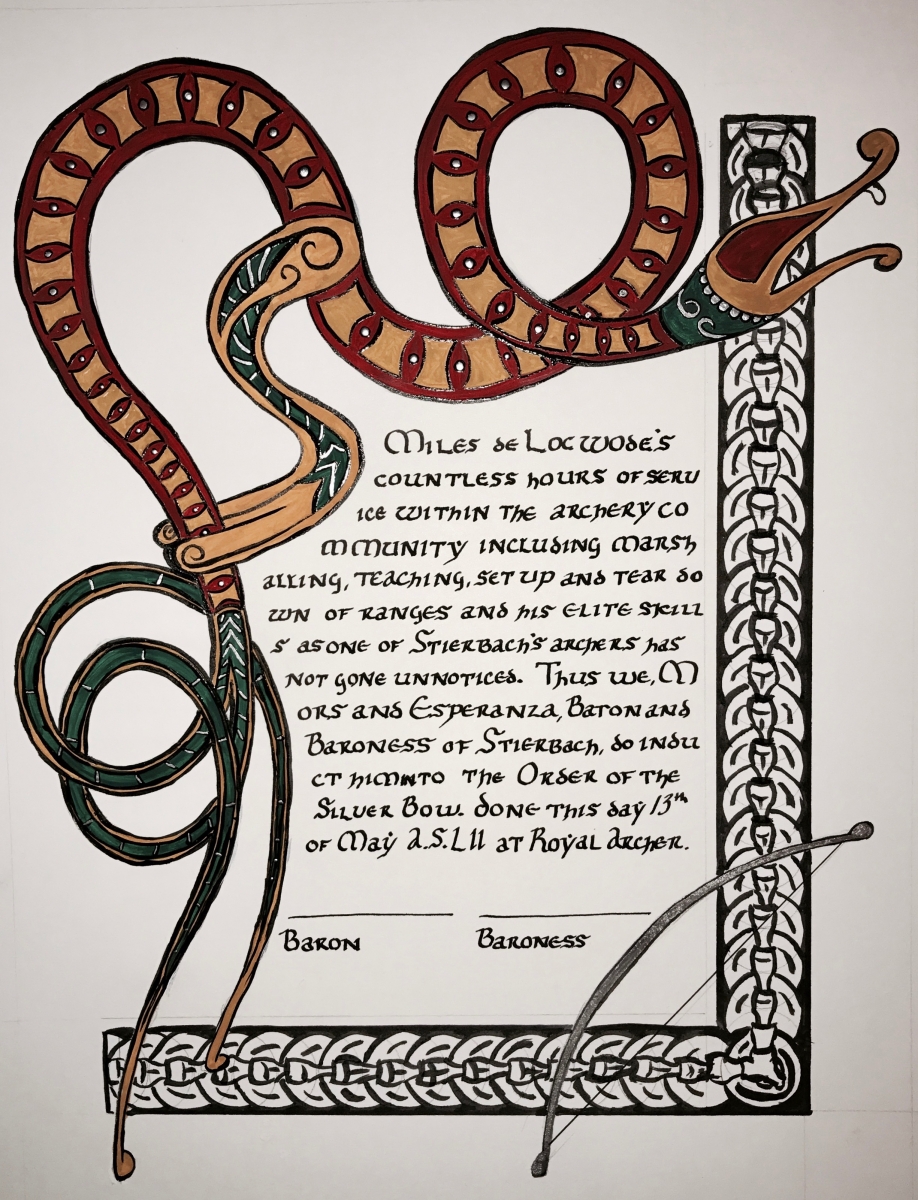 Miles de Locwode's
countless hours of serv
ice within the archery co
mmunity including marsh
alling, teaching, set up and tear do
wn of ranges and his elite skill
s as one of Stierbach's archers has
not gone unnoticed. Thus we, M
ors and Esperanza, Baron and
Baroness of Stierbach, do indu
ct him into the Order of the
Silver Bow. Done this day 13th
of May A.S. LII at Royal Archer.
Baron Baroness